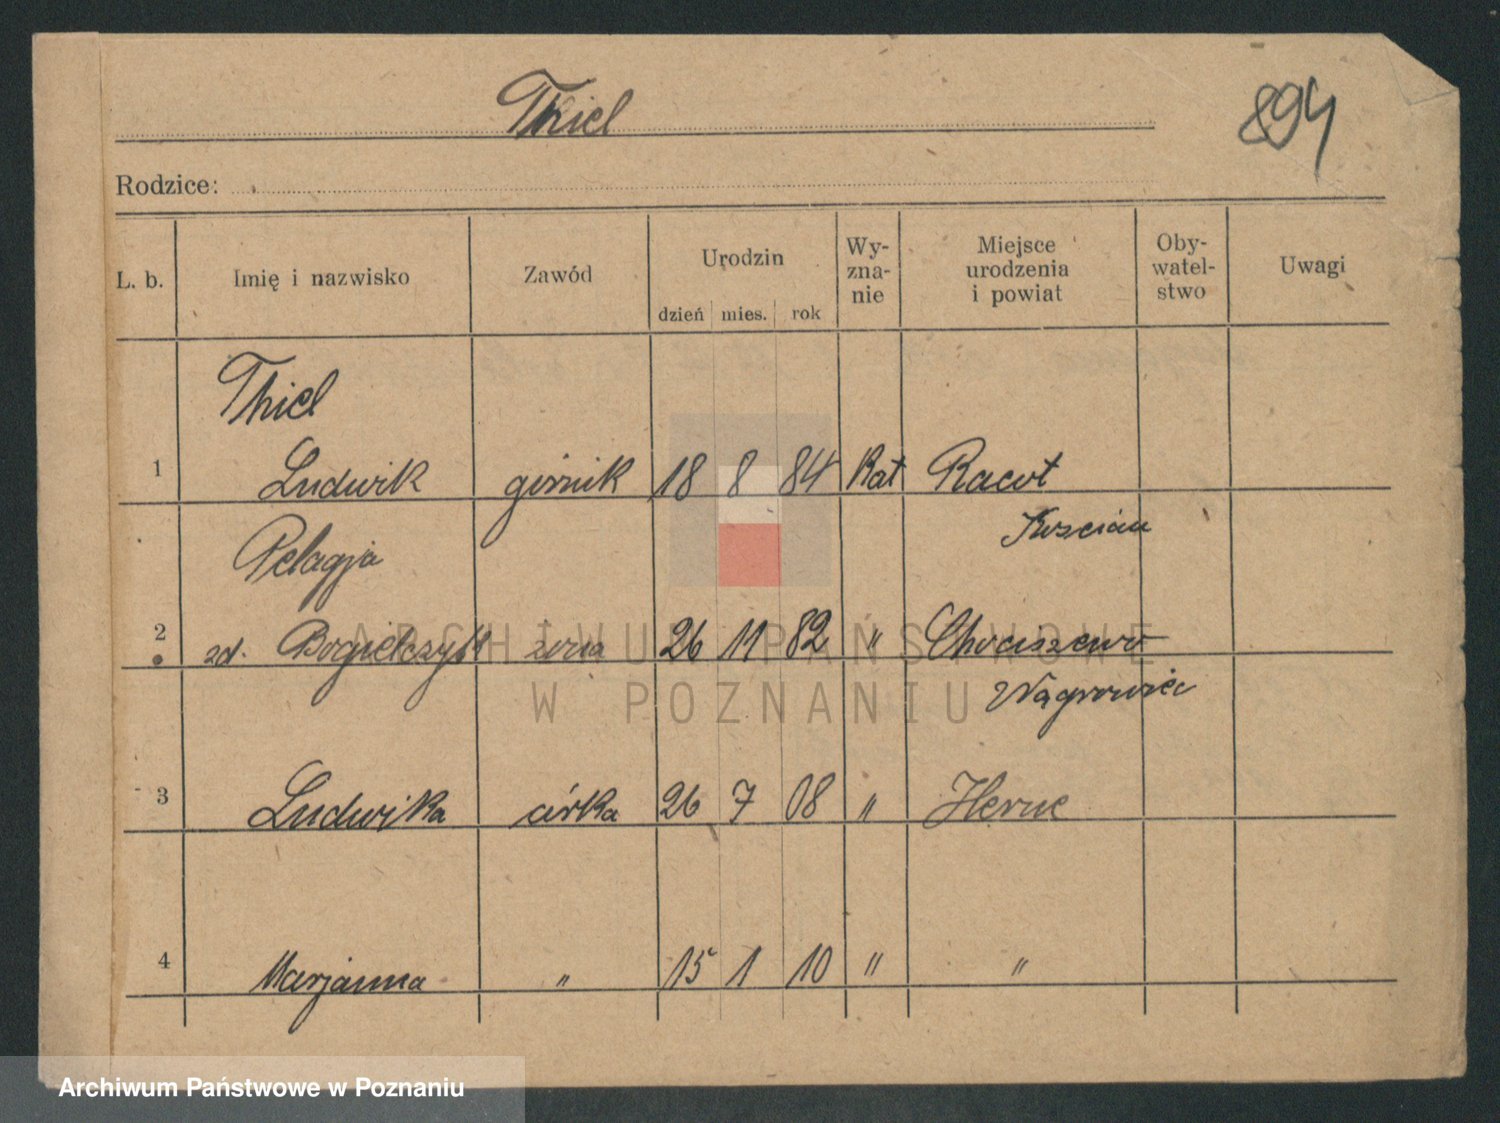 Thiel
894
Rodzice:
L. b.
Imię i nazwisko
Zawód
Urodzin
dzień mies. rok
Wy-
zna-
nie
Miejsce
urodzenia
i powiat
Oby-
watel-
stwo
Uwagi
Thiel
1 Ludwik górnik 18 8 84 Kat Racot
Kościan
Pelagja
2 zd. żona 26 11 82 " Chociszewo
Wągrowiec
3 Ludwika córka 26 7 08 " Herne
4 Marjanna " 15 1 10 " "
ARCHIWUM PAŃSTWOWE
W POZNANIU
Archiwum Państwowe w Poznaniu